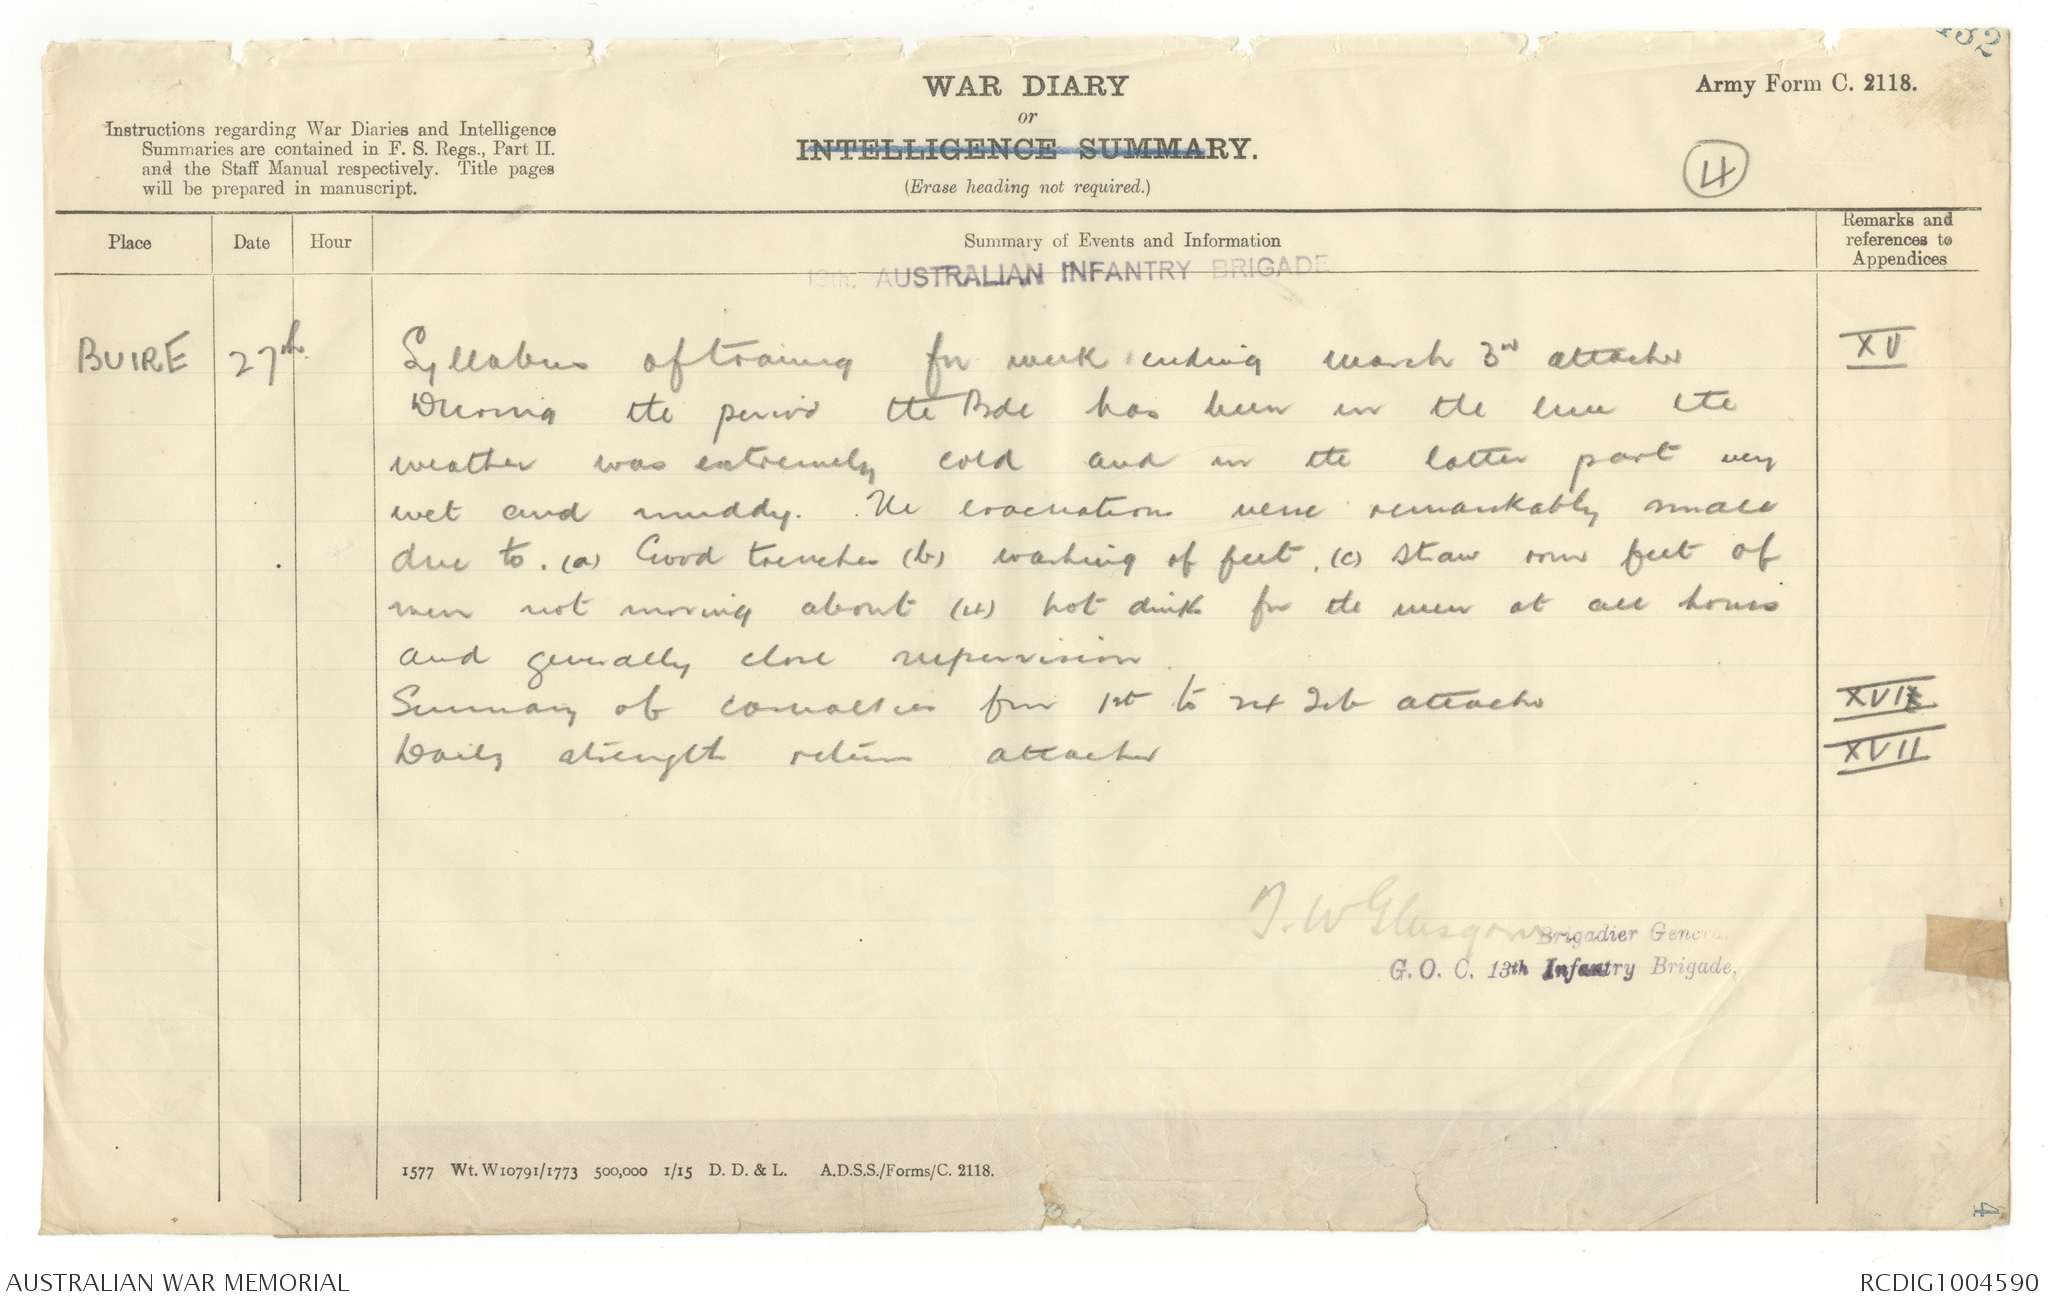 132
WAR DIARY
or
INTELLIGENCE SUMMARY.
(Erase heading not required.)
Army Form C. 2118.
Instructions regarding War Diaries and Intelligence
Summaries are contained in F. S. Regs., Part II.
and the Staff Manual respectively. Title pages
will be prepared in manuscript.
4
Place
Date
Hour
Summary of Events and Information
Remarks and
references to
Appendices
13th. AUSTRALIAN INFANTRY BRIGADE
BUIRE 27th Syllabus of training for week ending March 3rd attached XV
During the period the Bde has been in the line the
weather was extremely cold and in the latter part very
wet and muddy. The evacuations were remarkably small
due to. (a) Good trenches (b) washing of feet, (c) straw round feet of
men not moving about (d) hot drinks for the men at all hours
and generally close supervision.
Summary of casualties from 1st to 24 Feb attached XVI
Daily strength return attached XVII
T. W Glasgow Brigadier General
G. O. C. 13th Infantry Brigade,
1577 Wt. W10791/1773 500,000 1/15 D. D. & L. A.D.S.S./Forms/C. 2118.
4
AUSTRALIAN WAR MEMORIAL
RCDIG1004590